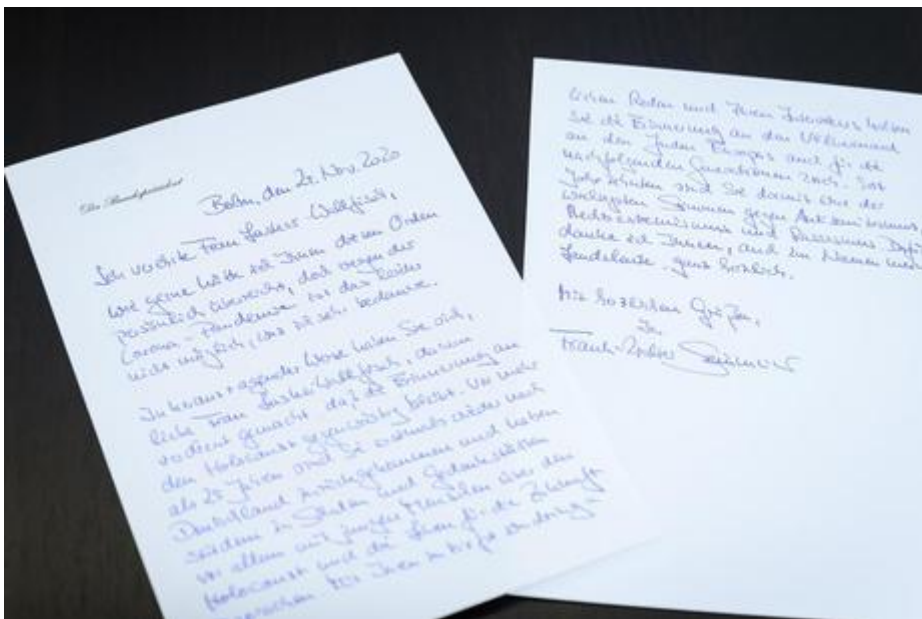 Der Bundespräsident
Berlin, den 25. Nov. 2020
Sehr verehrte Frau Lasker-Wallfisch,
wie gerne hätte ich Ihnen diesen Orden
persönlich überreicht, doch wegen der
Corona-Pandemie ist das leider
nicht möglich, was ich sehr bedauere.
In herausragender Weise haben Sie sich,
liebe Frau Lasker-Wallfisch, darum
verdient gemacht, daß die Erinnerung an
den Holocaust gegenwärtig bleibt. Vor mehr
als 25 Jahren sind Sie erstmals wieder nach
Deutschland zurückgekommen und haben
seitdem in Schulen und Gedenkstätten
vor allem mit jungen Menschen über den
Holocaust und die für die Zukunft
gesprochen. Mit Ihren
Reden und Ihren Interviews halten
Sie die Erinnerung an den Völkermord
an den Juden Europas auch für die
nachfolgenden Generationen wach. Seit
Jahrzehnten sind Sie damit eine der
wichtigsten Stimmen gegen Antisemitismus,
Rechtsextremismus und Rassismus. Dafür
danke ich Ihnen, auch im Namen meiner
Landsleute, ganz herzlich.
Mit herzlichen Grüßen,
Ihr
Frank-Walter Steinmeier